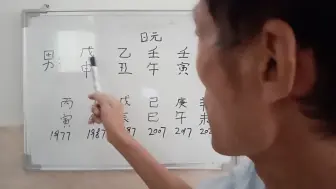 日元
男 戊 乙 壬 壬
申 丑 午 寅
丙 戊 己 庚
寅 辰 巳 午
1977 1987 2007 2017